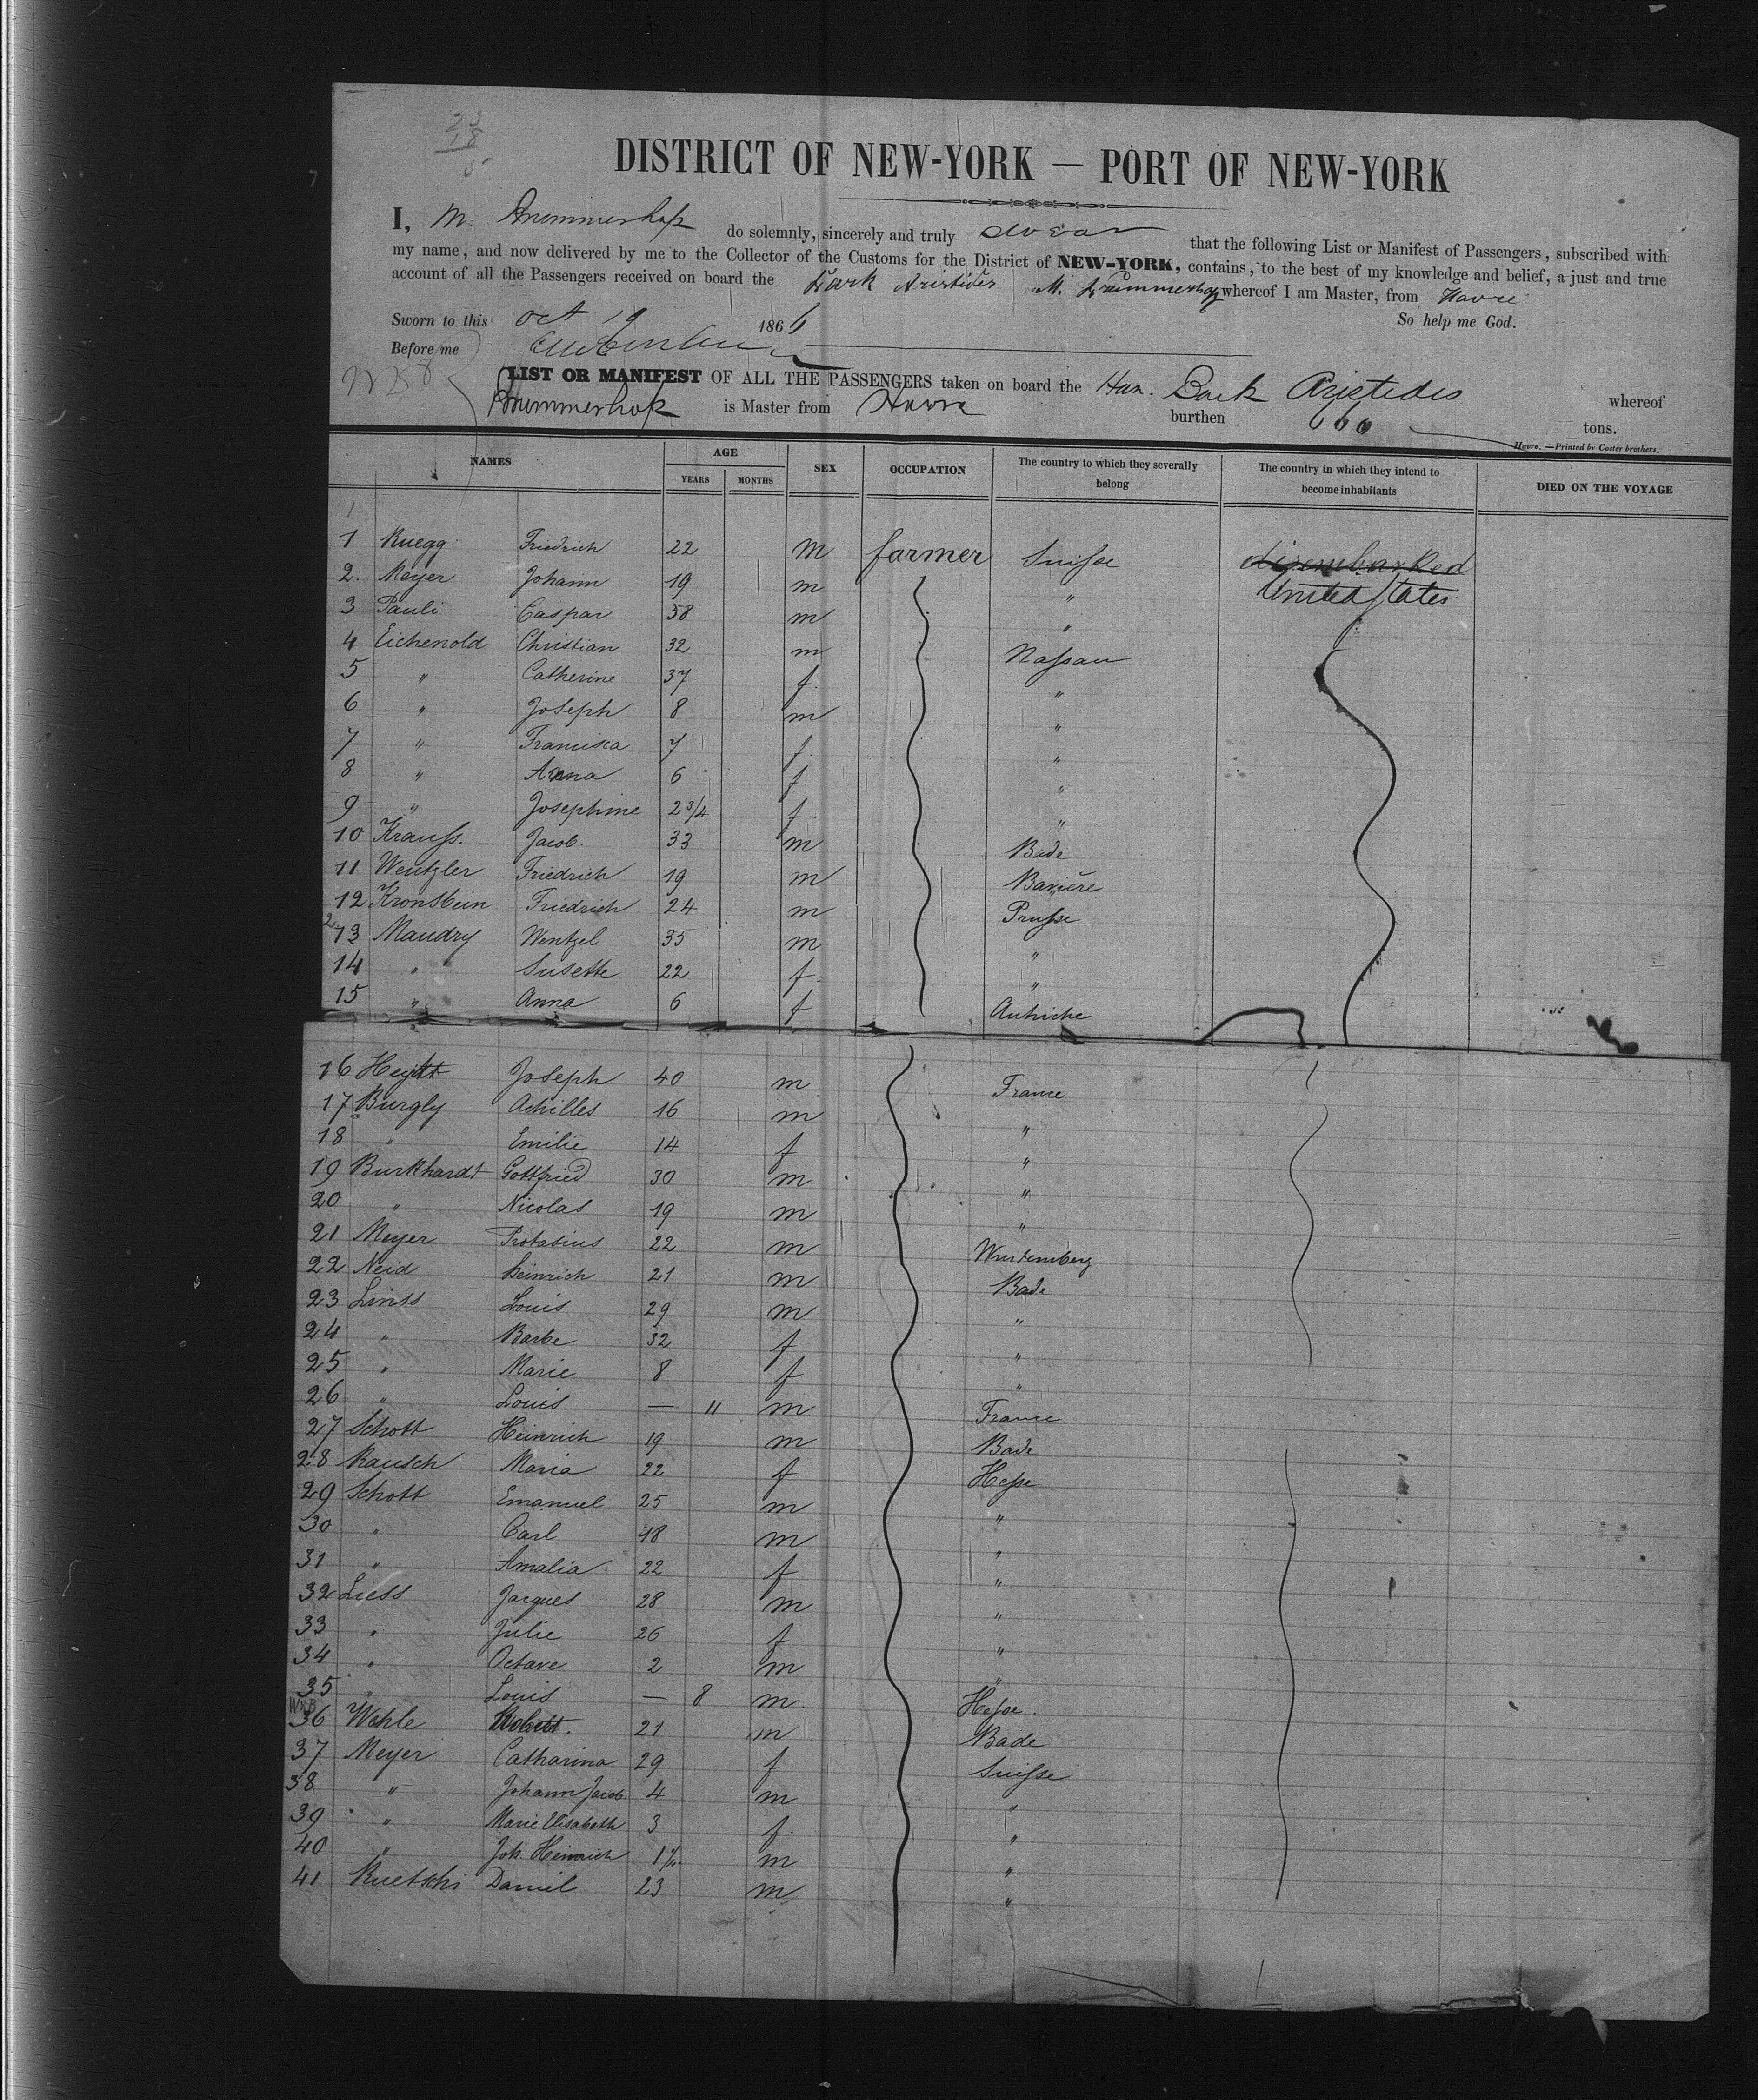 23
18
5
DISTRICT OF NEW-YORK — PORT OF NEW-YORK
I, M. do solemnly, sincerely and truly swear that the following List or Manifest of Passengers, subscribed with
my name, and now delivered by me to the Collector of the Customs for the District of NEW-YORK, contains, to the best of my knowledge and belief, a just and true
account of all the Passengers received on board the Bark Aristides M. whereof I am Master, from Havre
Sworn to this Oct 19 1866 So help me God.
Before me
LIST OR MANIFEST OF ALL THE PASSENGERS taken on board the Han. Bark Aristides whereof
is Master from Havre burthen 666 tons.
Havre. — Printed by Coster brothers.
NAMES AGE YEARS MONTHS SEX OCCUPATION The country to which they severally belong The country in which they intend to become inhabitants DIED ON THE VOYAGE
1 Ruegg Friedrich 22 m farmer Suisse disembarked
2. Meyer Johann 19 m " United States
3 Pauli Caspar 58 m "
4 Eichenold Christian 32 m Nassau
5 " Catherine 37 f. "
6 " Joseph 8 m "
7 " Francisca 7 f. "
8 " Anna 6 f "
9 " Josephine 2 3/4 f. "
10 Krauss. Jacob 33 m Bade
11 Wentzler Friedrich 19 m Bavière
12 Kronstein Friedrich 24 m Prusse
13 Maudry Wentzel 35 m "
14 " Susette 22 f "
15 " Anna 6 f Autriche
16 Joseph 40 m France
17 Burgly Achilles 16 m "
18 " Emilie 14 f "
19 Burkhardt Gottfried 30 m "
20 " Nicolas 19 m "
21 Meyer Protasius 22 m Wurtemberg
22 Neid Heinrich 21 m Bade
23 Linss Louis 29 m "
24 " Barbe 32 f "
25 " Marie 8 f "
26 " Louis — 11 m France
27 Schott Heinrich 19 m Bade
28 Rausch Maria 22 f Hesse
29 Schott Emanuel 25 m "
30 " Carl 18 m "
31 " Amalia 22 f "
32 Liess Jacques 28 m "
33 " Julie 26 f "
34 " Octave 2 m "
35 " Louis — 8 m Hesse.
36 Wehle 21 m Bade
37 Meyer Catharina 29 f Suisse
38 " Johann Jacob 4 m "
39 " Marie Elisabeth 3 f. "
40 " Joh. Heinrich m "
41 Ruetschi Daniel 23 m "